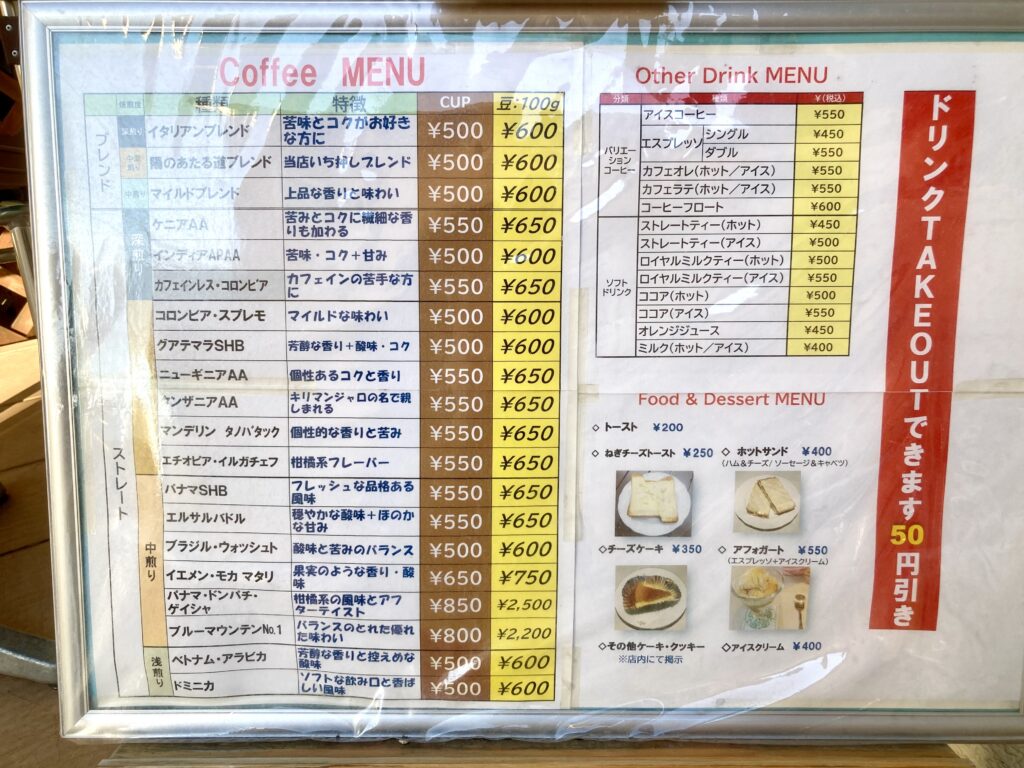 Coffee MENU
焙煎度 種類 特徴 CUP 豆:100g
ブレンド
深煎り イタリアンブレンド 苦味とコクがお好きな方に ¥500 ¥600
中深煎り 陽のあたる道ブレンド 当店いち押しブレンド ¥500 ¥600
中煎り マイルドブレンド 上品な香りと味わい ¥500 ¥600
ストレート
深煎り
ケニアAA 苦みとコクに繊細な香りも加わる ¥550 ¥650
インディアAPAA 苦味・コク+甘み ¥500 ¥600
カフェインレス・コロンビア カフェインの苦手な方に ¥550 ¥650
コロンビア・スプレモ マイルドな味わい ¥500 ¥600
グアテマラSHB 芳醇な香り+酸味・コク ¥500 ¥600
ニューギニアAA 個性あるコクと香り ¥550 ¥650
タンザニアAA キリマンジャロの名で親しまれる ¥550 ¥650
マンデリン タノバタック 個性的な香りと苦み ¥550 ¥650
エチオピア・イルガチェフ 柑橘系フレーバー ¥550 ¥650
中煎り
パナマSHB フレッシュな品格ある風味 ¥550 ¥650
エルサルバドル 穏やかな酸味+ほのかな甘み ¥550 ¥650
ブラジル・ウォッシュト 酸味と苦みのバランス ¥500 ¥600
イエメン・モカ マタリ 果実のような香り・酸味 ¥650 ¥750
パナマ・ドンパチ・ゲイシャ 柑橘系の風味とアフターテイスト ¥850 ¥2,500
ブルーマウンテンNo.1 バランスのとれた優れた味わい ¥800 ¥2,200
浅煎り
ベトナム・アラビカ 芳醇な香りと控えめな酸味 ¥500 ¥600
ドミニカ ソフトな飲み口と香ばしい風味 ¥500 ¥600
Other Drink MENU
分類 種類 ¥(税込)
バリエーションコーヒー
アイスコーヒー ¥550
エスプレッソ シングル ¥450
ダブル ¥550
カフェオレ(ホット/アイス) ¥550
カフェラテ(ホット/アイス) ¥550
コーヒーフロート ¥600
ソフトドリンク
ストレートティー(ホット) ¥450
ストレートティー(アイス) ¥500
ロイヤルミルクティー(ホット) ¥500
ロイヤルミルクティー(アイス) ¥550
ココア(ホット) ¥500
ココア(アイス) ¥550
オレンジジュース ¥450
ミルク(ホット/アイス) ¥400
Food & Dessert MENU
◇トースト ¥200
◇ねぎチーズトースト ¥250
◇ホットサンド ¥400
(ハム&チーズ/ソーセージ&キャベツ)
◇チーズケーキ ¥350
◇アフォガート ¥550
(エスプレッソ+アイスクリーム)
◇その他ケーキ・クッキー
※店内にて掲示
◇アイスクリーム ¥400
ドリンクTAKEOUTできます50円引き